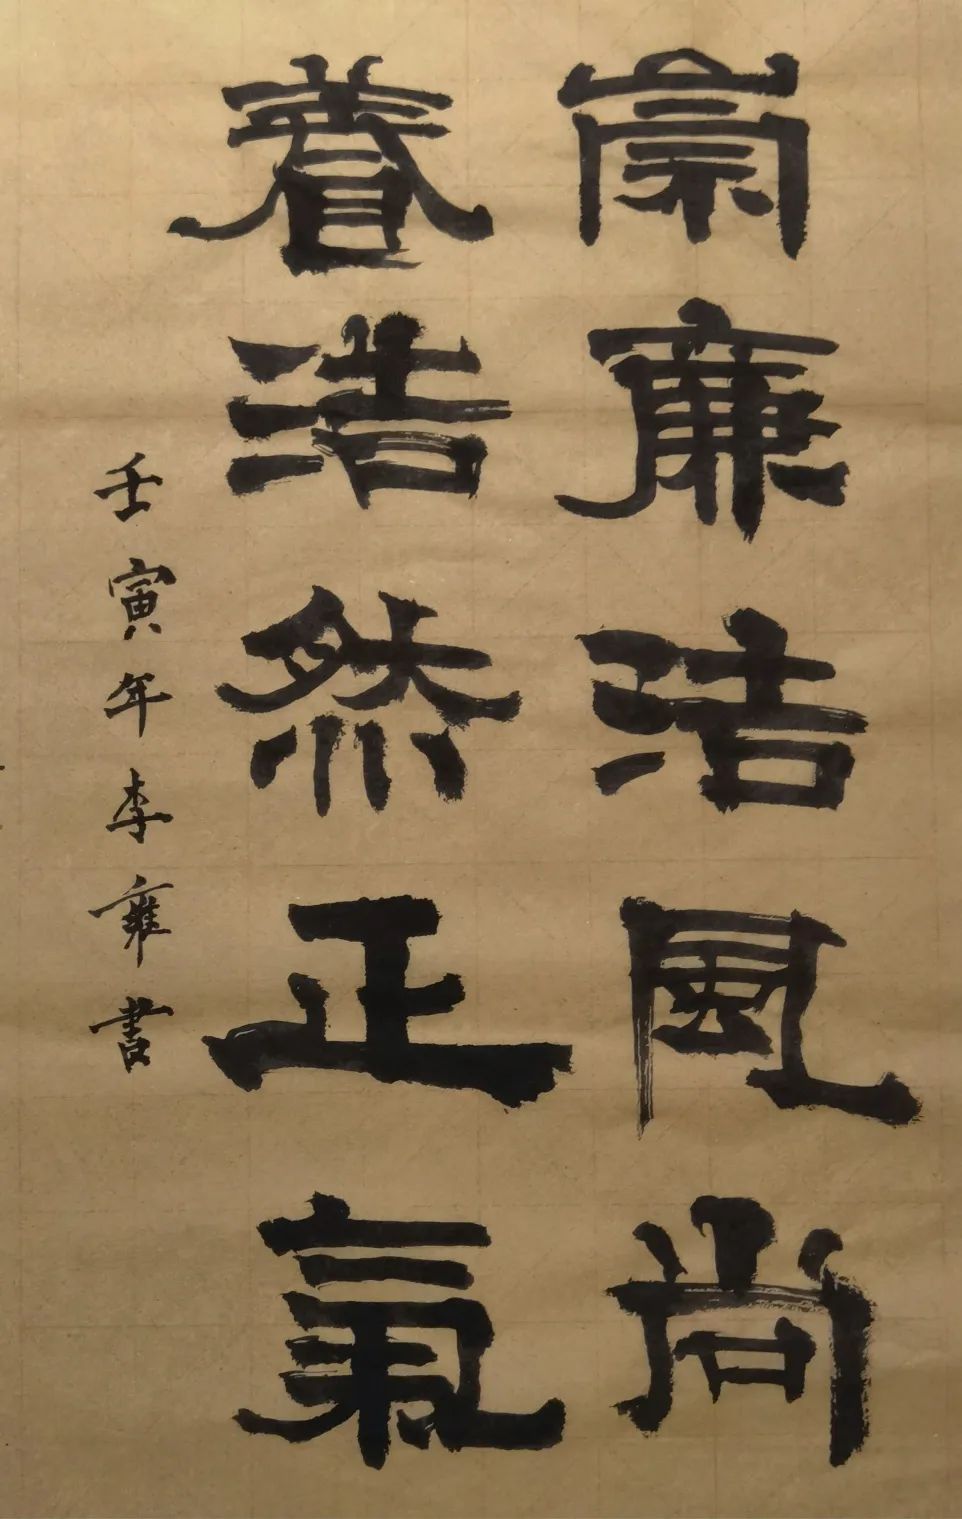 崇廉洁風尚
養浩然正氣
壬寅年李雍書